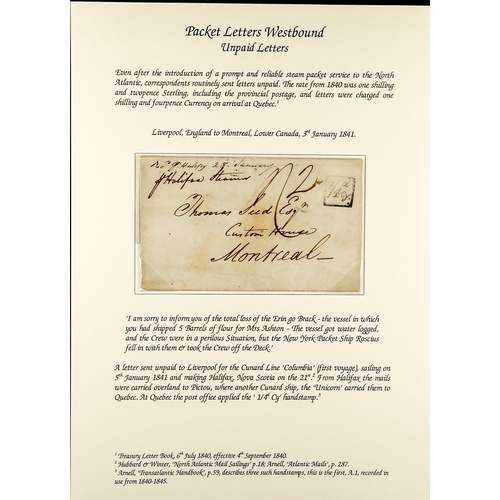 Packet Letters Westbound
Unpaid Letters
Even after the introduction of a prompt and reliable steam packet service to the North
Atlantic, correspondents routinely sent letters unpaid. The rate from 1840 was one shilling
and twopence Sterling, including the provincial postage, and letters were charged one
shilling and fourpence Currency on arrival at Quebec.¹
Liverpool, England to Montreal, Lower Canada, 3ʳᵈ January 1841.
Halifax 2 January
p Halifax Steamer
Thomas Seed Esqʳ
Custom House
Montreal
'I am sorry to inform you of the total loss of the Erin go Brack - the vessel in which
you had shipped 5 Barrels of flour for Mrs Ashton - The vessel got water logged,
and the Crew were in a perilous Situation, but the New York Packet Ship Roscius
fell in with them & took the Crew off the Deck,'
A letter sent unpaid to Liverpool for the Cunard Line 'Columbia' (first voyage), sailing on
5ᵗʰ January 1841 and making Halifax, Nova Scotia on the 21ˢᵗ.² From Halifax the mails
were carried overland to Pictou, where another Cunard ship, the 'Unicorn' carried them to
Quebec. At Quebec the post office applied the ' 1/4ᵈ Cy' handstamp.³
¹ Treasury Letter Book, 6ᵗʰ July 1840, effective 4ᵗʰ September 1840.
² Hubbard & Winter, 'North Atlantic Mail Sailings' p.18; Arnell, 'Atlantic Mails', p. 287.
³ Arnell, 'Transatlantic Handbook', p.59, describes three such handstamps, this is the first, A.1, recorded in
use from 1840-1845.